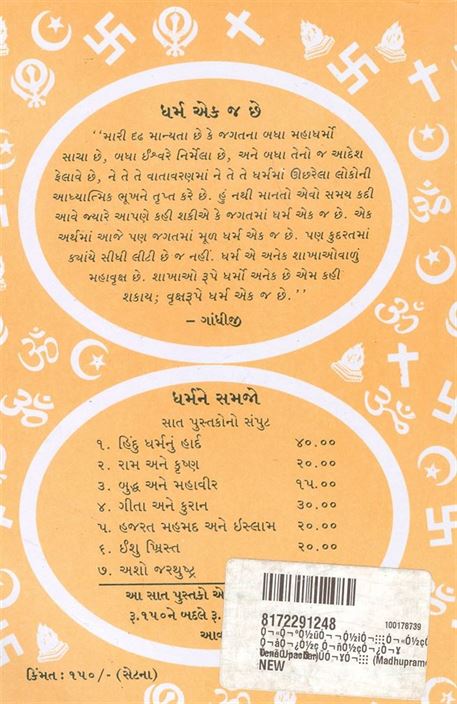 ધર્મ એક જ છે
‘‘મારી દૃઢ માન્યતા છે કે જગતના બધા મહાધર્મો
સાચા છે, બધા ઈશ્વરે નિર્મેલા છે, અને બધા તેનો જ આદેશ
ફેલાવે છે, ને તે તે વાતાવરણમાં ને તે તે ધર્મમાં ઊછરેલા લોકોની
આધ્યાત્મિક ભૂખને તૃપ્ત કરે છે. હું નથી માનતો એવો સમય કદી
આવે જ્યારે આપણે કહી શકીએ કે જગતમાં ધર્મ એક જ છે. એક
અર્થમાં આજે પણ જગતમાં મૂળ ધર્મ એક જ છે. પણ કુદરતમાં
ક્યાંયે સીધી લીટી છે જ નહીં. ધર્મ એ અનેક શાખાઓવાળું
મહાવૃક્ષ છે. શાખાઓ રૂપે ધર્મો અનેક છે એમ કહી
શકાય; વૃક્ષરૂપે ધર્મ એક જ છે.’’
– ગાંધીજી
ધર્મને સમજો
સાત પુસ્તકોનો સંપુટ
૧. હિંદુ ધર્મનું હાર્દ ૪૦.૦૦
૨. રામ અને કૃષ્ણ ૨૦.૦૦
૩. બુદ્ધ અને મહાવીર ૧૫.૦૦
૪. ગીતા અને કુરાન ૩૦.૦૦
૫. હજરત મહમદ અને ઇસ્લામ ૨૦.૦૦
૬. ઈશુ ખ્રિસ્ત ૨૦.૦૦
૭. અશો જરથુષ્ટ્ર
આ સાત પુસ્તકો એ
રૂ.૧૫૦ને બદલે રૂ.
આવ
કિંમત : ૧૫૦/- (સેટના)
8172291248
100178739
(Madhupram
NEW